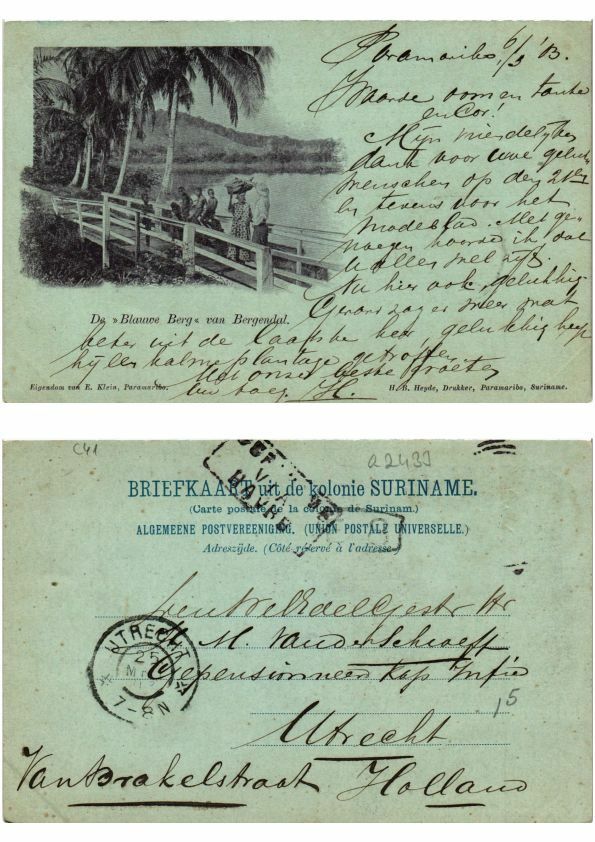 Paramaribo, 6/3 '03.
Waarde oom en tante
en Cor!
Mijn vriendelijken
dank voor uwe geluk
menschen op den
en tevens voor het
modeblad. Met ge
noegen hoorde ik dat
u allen wel zijt.
Nu hier ook, gelukkig
Gerard zag er meer mat
beter uit de laatste keer gelukkig heeft
hij een kalme plantage getroffen
Met onze beste groeten
De »Blauwe Berg« van Bergendal.
Eigendom van E. Klein, Paramaribo.
H. B. Heyde, Drukker, Paramaribo, Suriname.
C41
a2433
VIA
HAVRE
BRIEFKAART uit de kolonie SURINAME.
(Carte postale de la colonie de Surinam.)
ALGEMEENE POSTVEREENIGING. (UNION POSTALE UNIVERSELLE.)
Adreszijde. (Côté réservé à l'adresse.)
Den WelEdelGestr Hr
M. van der Schroeff
Gepensionneerd Kap Infie
UTRECHT
25
7-8N
1,5
Utrecht
Van Brakelstraat Holland